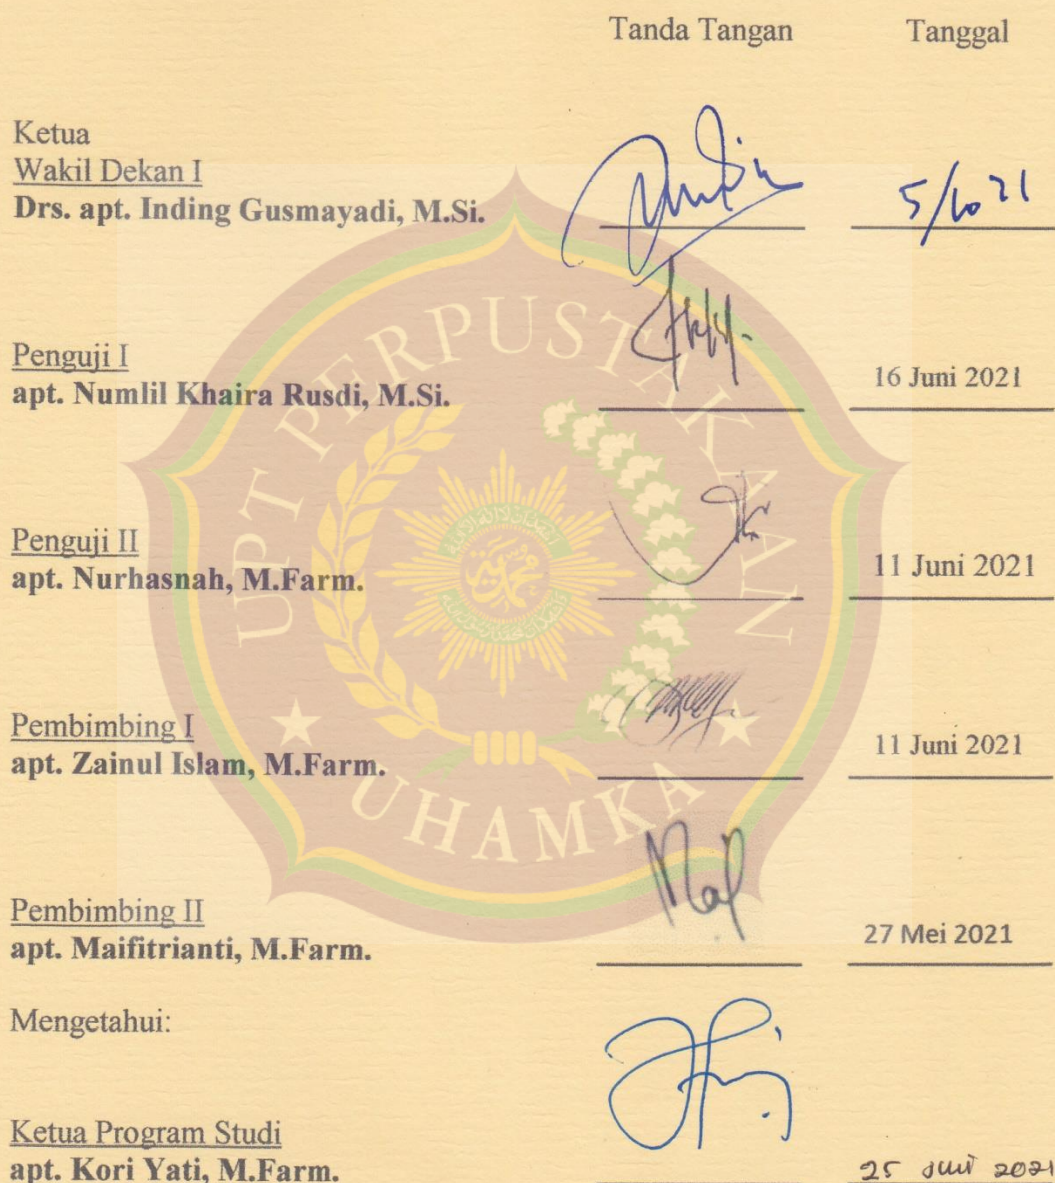 Tanda Tangan Tanggal
Ketua
Wakil Dekan I
Drs. apt. Inding Gusmayadi, M.Si.
5/10 21
Penguji I
apt. Numlil Khaira Rusdi, M.Si.
16 Juni 2021
Penguji II
apt. Nurhasnah, M.Farm.
11 Juni 2021
Pembimbing I
apt. Zainul Islam, M.Farm.
11 Juni 2021
Pembimbing II
apt. Maifitrianti, M.Farm.
27 Mei 2021
Mengetahui:
Ketua Program Studi
apt. Kori Yati, M.Farm.
25 Juni 2021
UPT PERPUSTAKAAN
UHAMKA